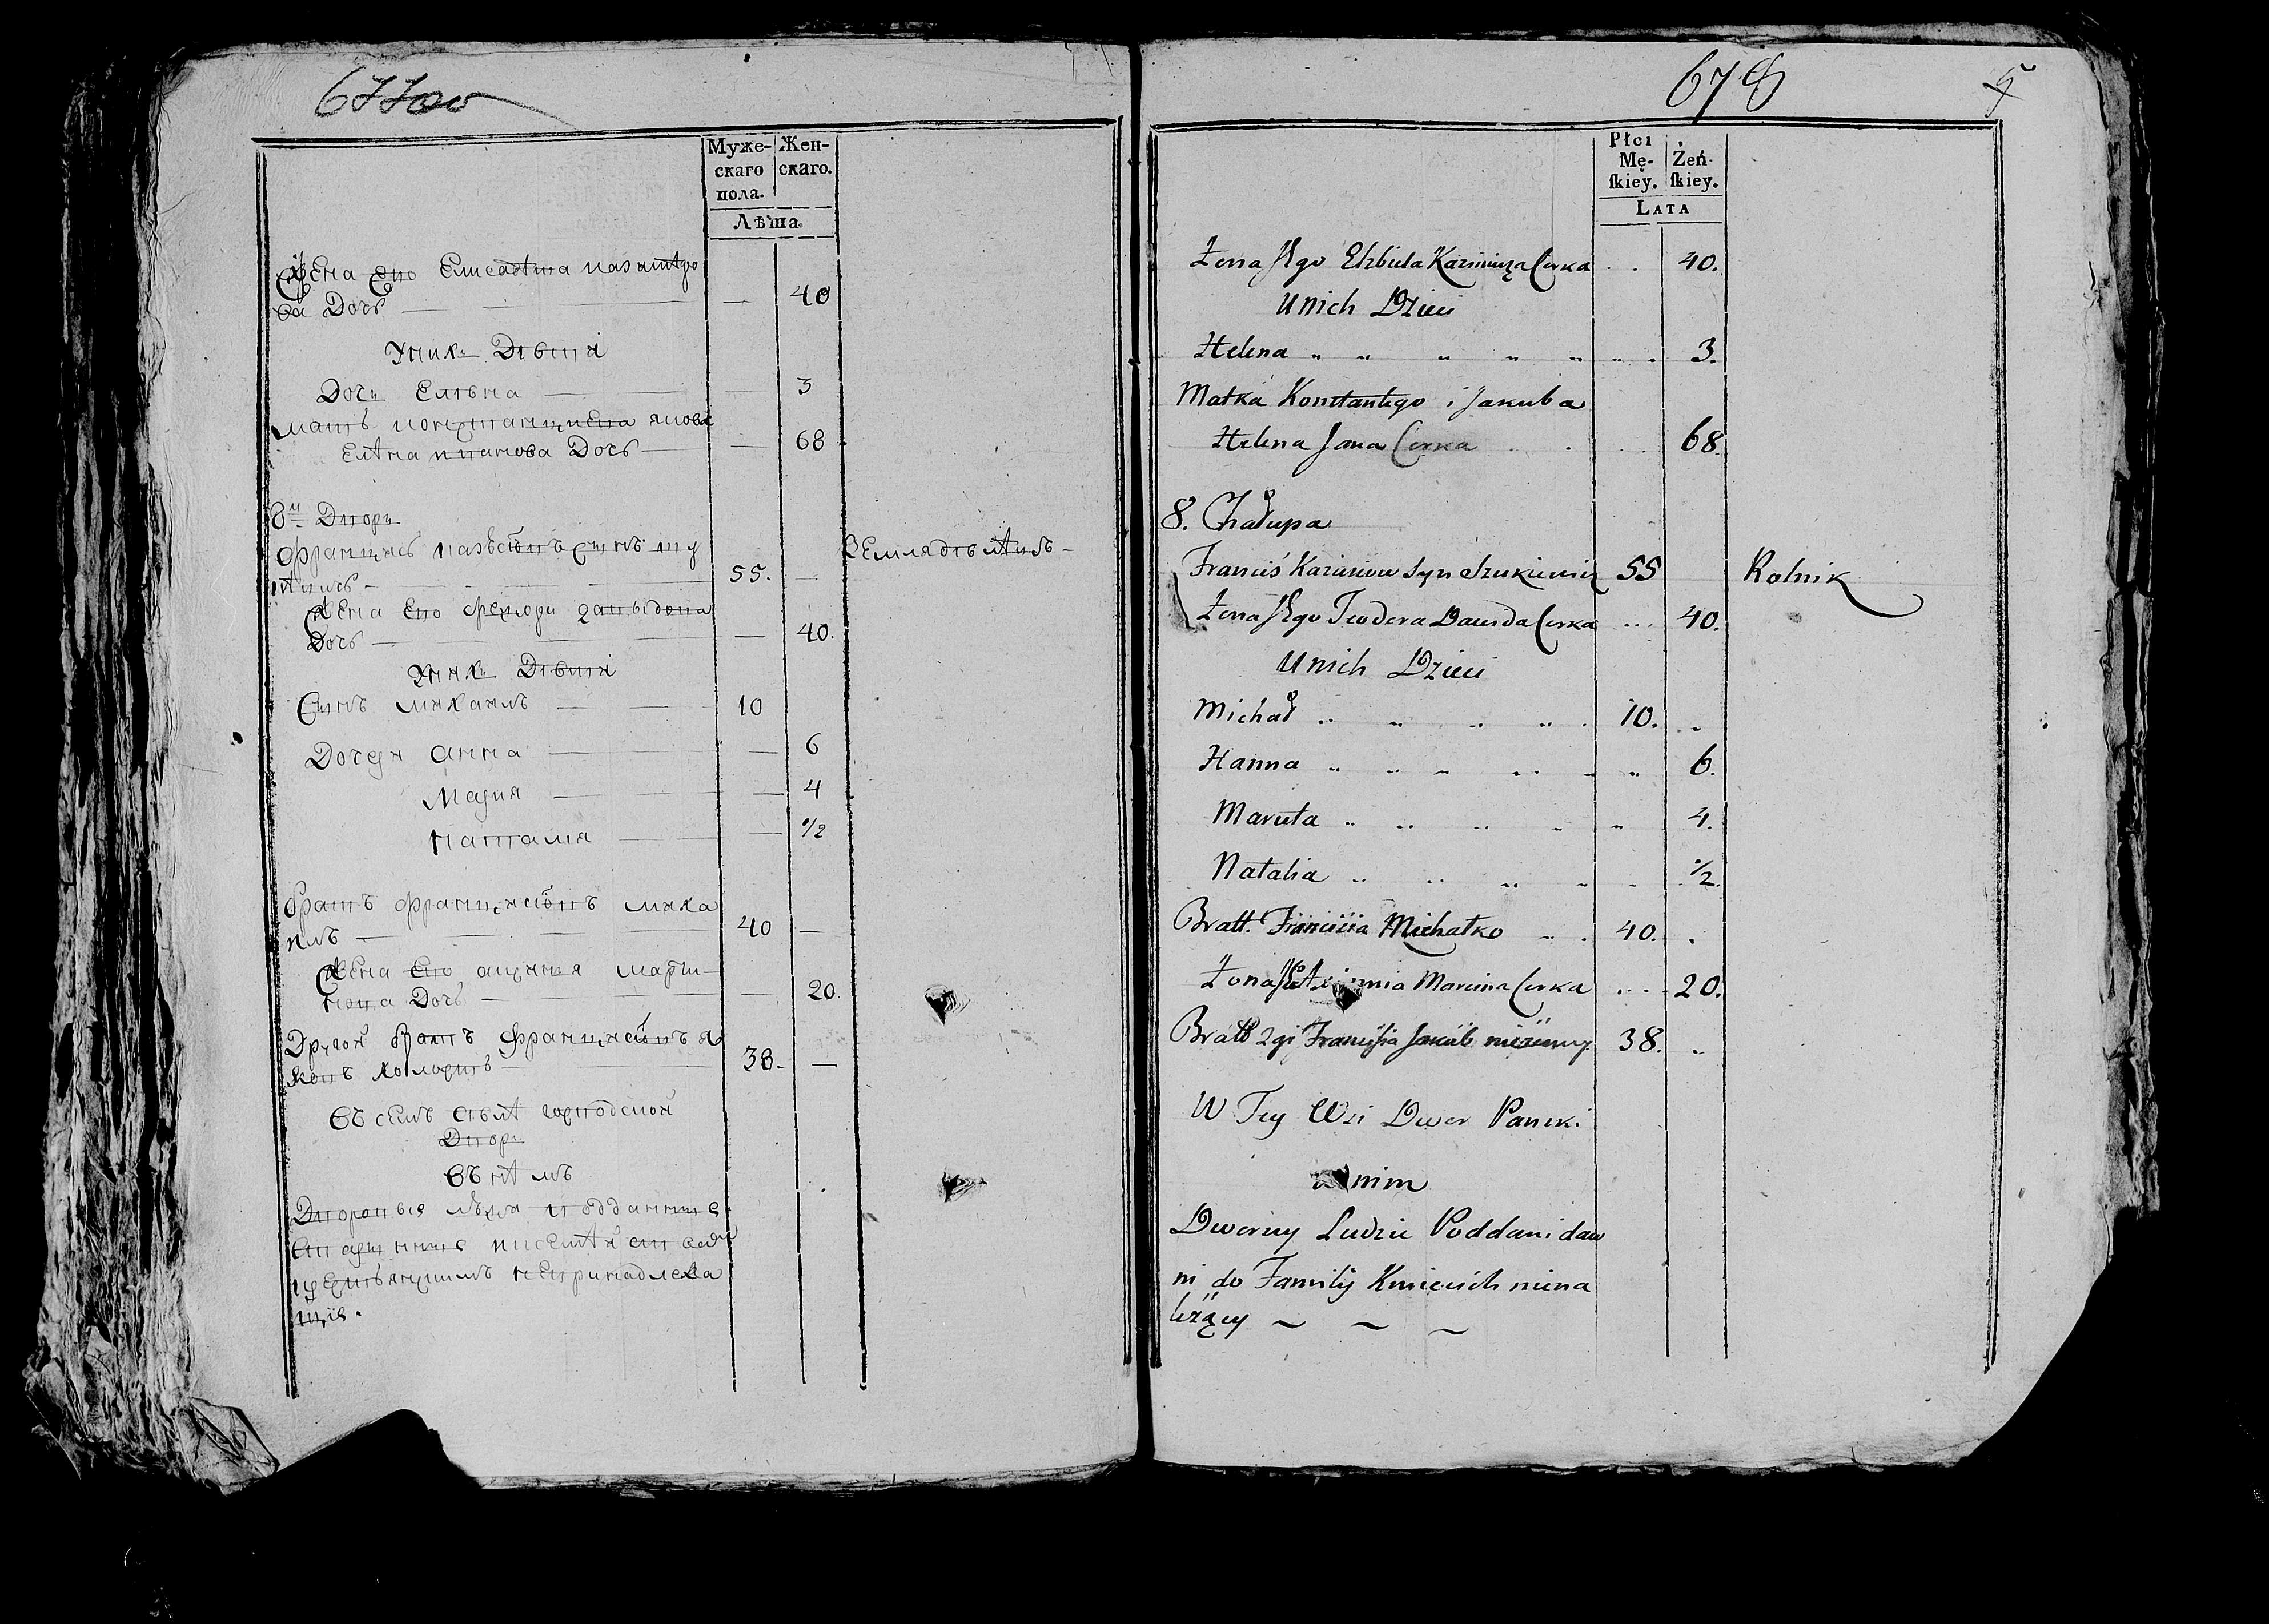 677об
Муже-
скаго
пола.
Жен-
скаго.
Лѣта.
Жена Его Елисавета Казимѣро
ва Дочь — — — 40
У них Дѣти
Дочь Елѣна — — — 3
мать Констант Якова
Елѣна Иванова Дочь — — 68
8й Двор
Францишъ сынъ
55. —
Земля
Жена Его Давыдова
Дочь — — — 40.
У них Дѣти
Сынъ Михаилъ — — 10
Дочери Анна — — — 6
Мария — — — 4
Наталия — — — ½
Братъ Миха
илъ — — — 40 —
Жена Его Марти-
нова Дочь — — — 20.
Другой братъ Я
ковъ холостъ — — 38. —
Въ семъ господской
Двор
Въ нѣмъ
Дворовыя люди подданные
старинные
непринадлежа
щие.
678
5
Płci
Mę-
ſkiey.
Żeń-
ſkiey.
LATA
Żona Jego Elzbieta Kazimierza Corka . . 40.
U nich Dzieci
Helena „ „ „ „ „ „ . 3.
Matka Konstantego i Jakuba
Helena Jana Corka . . . 68.
8. Chałupa
Franciś Kazimierow Syn Szukiewicz 55 Rolnik
Żona Jego Teodora Dawida Corka ... 40.
U nich Dzieci
Michał „ „ „ „ . 10. „
Hanna „ „ „ „ „ „ 6.
Maruta „ „ „ „ „ 4.
Natalia „ „ „ „ „ ½.
Bratt. Francisia Michałko „ . 40. .
Żona Marcina Corka .... 20.
Bratt 2gi Francisia Jakub nieżenny 38. „
W Tey Wsi Dwor Panski.
w nim
Dworny Ludzie Poddani daw
ni do Familij Kmiecich niena
lezący ~ ~ ~